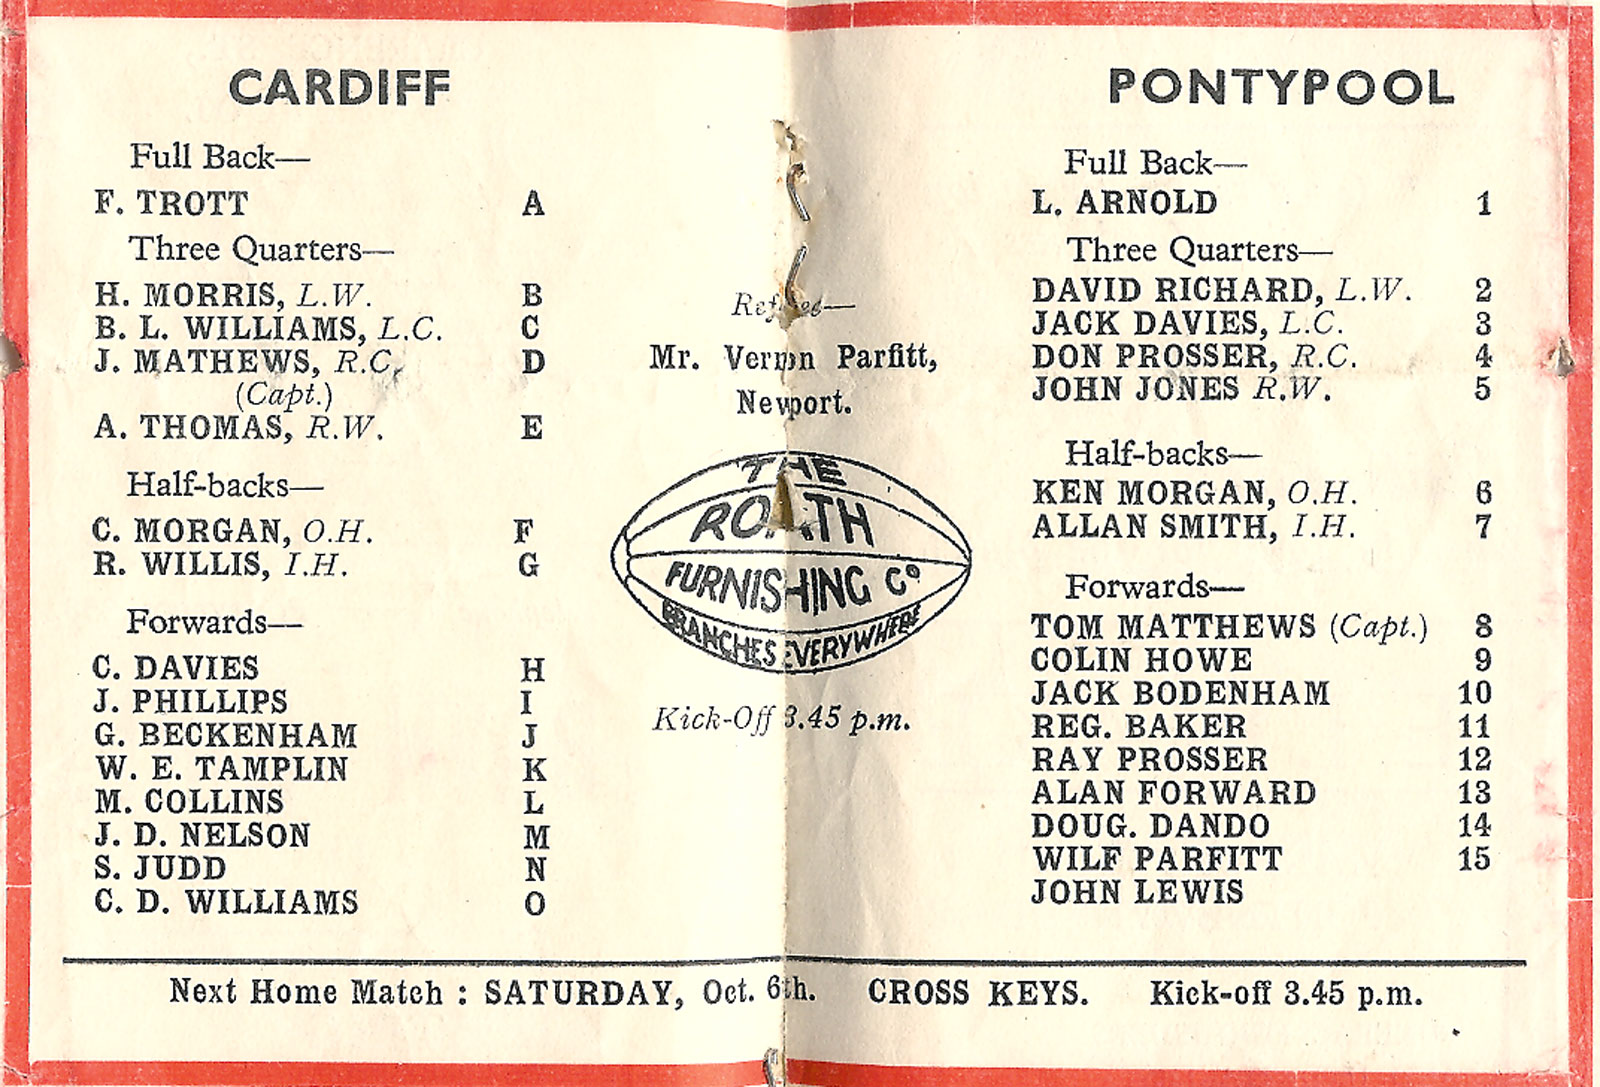 CARDIFF
Full Back—
F. TROTT A
Three Quarters—
H. MORRIS, L.W. B
B. L. WILLIAMS, L.C. C
J. MATHEWS, R.C. D
(Capt.)
A. THOMAS, R.W. E
Half-backs—
C. MORGAN, O.H. F
R. WILLIS, I.H. G
Forwards—
C. DAVIES H
J. PHILLIPS I
G. BECKENHAM J
W. E. TAMPLIN K
M. COLLINS L
J. D. NELSON M
S. JUDD N
C. D. WILLIAMS O
Referee—
Mr. Vernon Parfitt,
Newport.
THE
ROATH
FURNISHING Co
BRANCHES EVERYWHERE
Kick-Off 3.45 p.m.
PONTYPOOL
Full Back—
L. ARNOLD 1
Three Quarters—
DAVID RICHARD, L.W. 2
JACK DAVIES, L.C. 3
DON PROSSER, R.C. 4
JOHN JONES R.W. 5
Half-backs—
KEN MORGAN, O.H. 6
ALLAN SMITH, I.H. 7
Forwards—
TOM MATTHEWS (Capt.) 8
COLIN HOWE 9
JACK BODENHAM 10
REG. BAKER 11
RAY PROSSER 12
ALAN FORWARD 13
DOUG. DANDO 14
WILF PARFITT 15
JOHN LEWIS
Next Home Match : SATURDAY, Oct. 6th. CROSS KEYS. Kick-off 3.45 p.m.